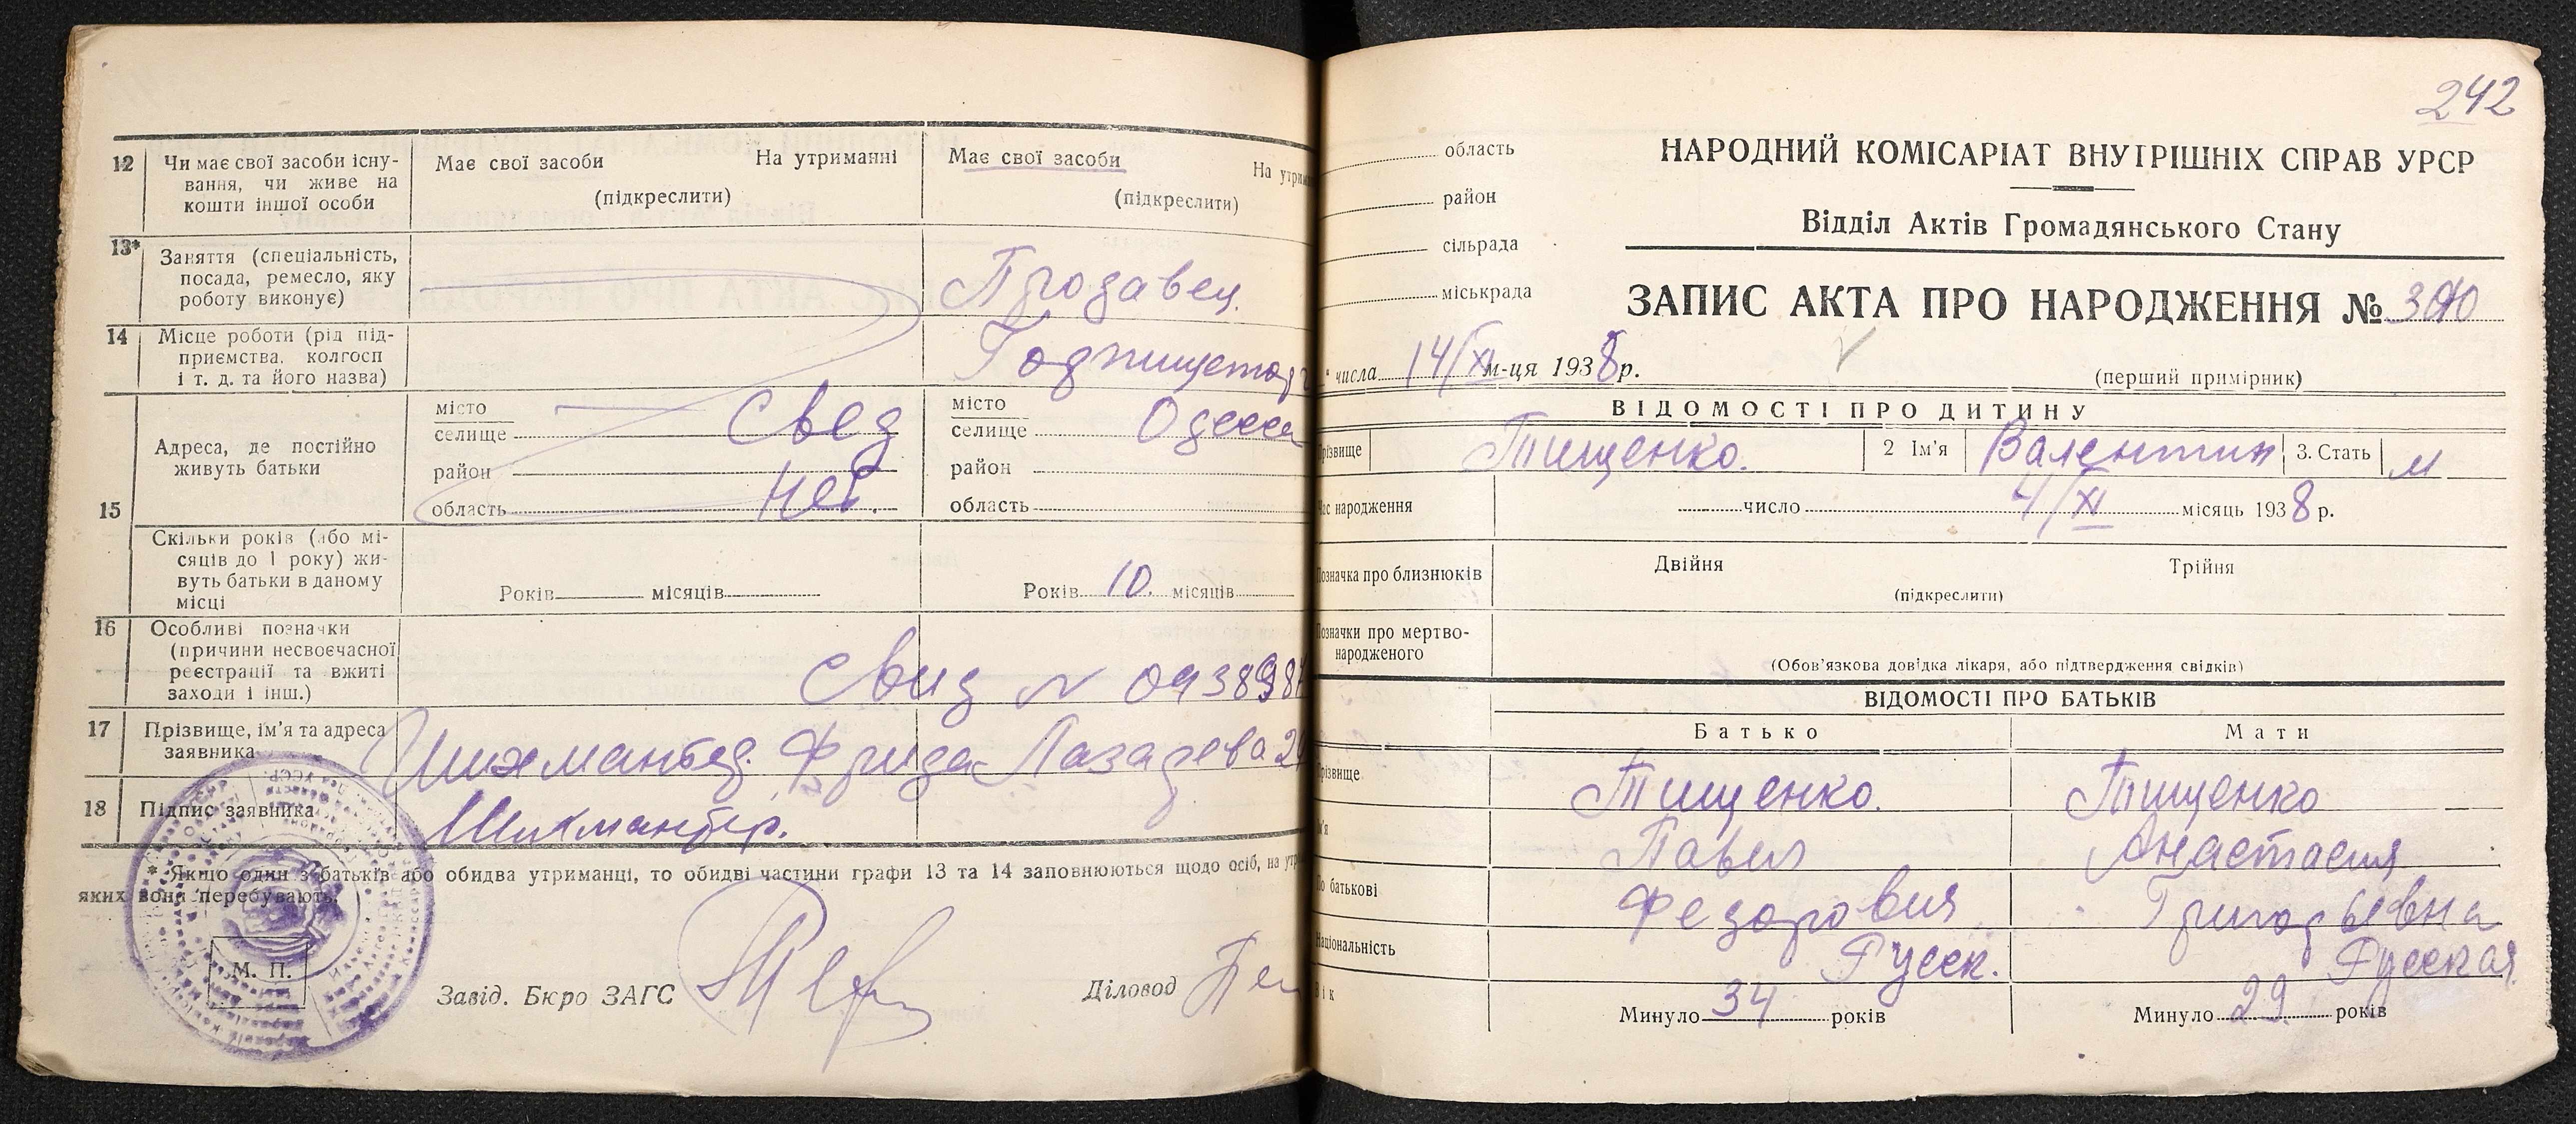 12 Чи має свої засоби існу-
вання, чи живе на
кошти іншої особи
Має свої засоби На утриманні
(підкреслити)
Має свої засоби
(підкреслити)
13* Заняття (спеціальність,
посада, ремесло, яку
роботу виконує)
Продавец.
14 Місце роботи (рід під-
приємства, колгосп
і т. д. та його назва)
Горпищеторг
15 Адреса, де постійно
живуть батьки
місто
селище Свед
район
область нет.
місто
селище Одесса
район
область
Скільки років (або мі-
сяців до 1 року) жи-
вуть батьки в даному
місці
Років місяців
Років 10. місяців
16 Особливі позначки
(причини несвоєчасної
реєстрації та вжиті
заходи і інш.)
Свид №
17 Прізвище, ім'я та адреса
заявника
Фрида Лазарева
18 Підпис заявника
* Якщо один з батьків або обидва утриманці, то обидві частини графи 13 та 14 заповнюються щодо осіб, на
яких вони перебувають.
М. П.
Завід. Бюро ЗАГС
Діловод
242
область
район
сільрада
міськрада
НАРОДНИЙ КОМІСАРІАТ ВНУТРІШНІХ СПРАВ УРСР
Відділ Актів Громадянського Стану
ЗАПИС АКТА ПРО НАРОДЖЕННЯ №
" числа 14/XI м-ця 1938 р.
(перший примірник)
ВІДОМОСТІ ПРО ДИТИНУ
Тищенко. 2 Ім'я Валентин 3. Стать м
народження число 4/XI місяць 1938 р.
Позначка про близнюків Двійня Трійня
(підкреслити)
Позначки про мертво-
народженого
(Обов'язкова довідка лікаря, або підтвердження свідків)
ВІДОМОСТІ ПРО БАТЬКІВ
Батько Мати
Прізвище Тищенко. Тищенко
Павел Анастасия
По батькові Федорович Григорьевна
Національність Русск. Русская
Вік Минуло 34 років Минуло 29. років